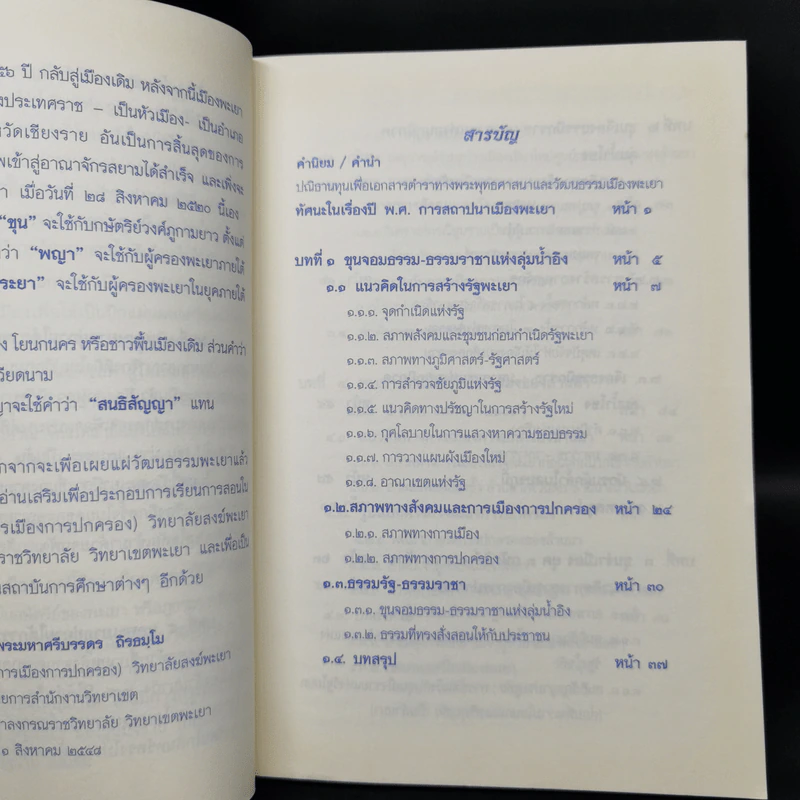 ๕๖ ปี กลับสู่เมืองเดิม หลังจากนี้เมืองพะเยา
ประเทศราช – เป็นหัวเมือง- เป็นอำเภอ
วัดเชียงราย อันเป็นการสิ้นสุดของการ
พเข้าสู่อาณาจักรสยามได้สำเร็จ และเพิ่งจะ
เมื่อวันที่ ๒๘ สิงหาคม ๒๕๒๐ นี้เอง
“ขุน” จะใช้กับกษัตริย์วงศ์ภูกามยาว ตั้งแต่
ว่า “พญา” จะใช้กับผู้ครองพะเยาภายใต้
ระยา” จะใช้กับผู้ครองพะเยาในยุคภายใต้
ง โยนกนคร หรือชาวพื้นเมืองเดิม ส่วนคำว่า
วียดนาม
ญาจะใช้คำว่า “สนธิสัญญา” แทน
กจากจะเพื่อเผยแผ่วัฒนธรรมพะเยาแล้ว
อ่านเสริมเพื่อประกอบการเรียนการสอนใน
การเมืองการปกครอง) วิทยาลัยสงฆ์พะเยา
ราชวิทยาลัย วิทยาเขตพะเยา และเพื่อเป็น
นสถาบันการศึกษาต่างๆ อีกด้วย
พระมหาศรีบรรดร ถิรธมฺโม
การเมืองการปกครอง) วิทยาลัยสงฆ์พะเยา
ยการสำนักงานวิทยาเขต
าลงกรณราชวิทยาลัย วิทยาเขตพะเยา
๑ สิงหาคม ๒๕๔๘
สารบัญ
คำนิยม / คำนำ
ปณิธานทุนเพื่อเอกสารตำราทางพระพุทธศาสนาและวัฒนธรรมเมืองพะเยา
ทัศนะในเรื่องปี พ.ศ. การสถาปนาเมืองพะเยา หน้า ๑
บทที่ ๑ ขุนจอมธรรม-ธรรมราชาแห่งลุ่มน้ำอิง หน้า ๕
๑.๑ แนวคิดในการสร้างรัฐพะเยา หน้า ๗
๑.๑.๑. จุดกำเนิดแห่งรัฐ
๑.๑.๒. สภาพสังคมและชุมชนก่อนกำเนิดรัฐพะเยา
๑.๑.๓. สภาพทางภูมิศาสตร์-รัฐศาสตร์
๑.๑.๔. การสำรวจชัยภูมิแห่งรัฐ
๑.๑.๕. แนวคิดทางปรัชญาในการสร้างรัฐใหม่
๑.๑.๖. กุศโลบายในการแสวงหาความชอบธรรม
๑.๑.๗. การวางแผนผังเมืองใหม่
๑.๑.๘. อาณาเขตแห่งรัฐ
๑.๒.สภาพทางสังคมและการเมืองการปกครอง หน้า ๒๔
๑.๒.๑. สภาพทางการเมือง
๑.๒.๒. สภาพทางการปกครอง
๑.๓.ธรรมรัฐ-ธรรมราชา หน้า ๓๐
๑.๓.๑. ขุนจอมธรรม-ธรรมราชาแห่งลุ่มน้ำอิง
๑.๓.๒. ธรรมที่ทรงสั่งสอนให้กับประชาชน
๑.๔. บทสรุป หน้า ๓๗